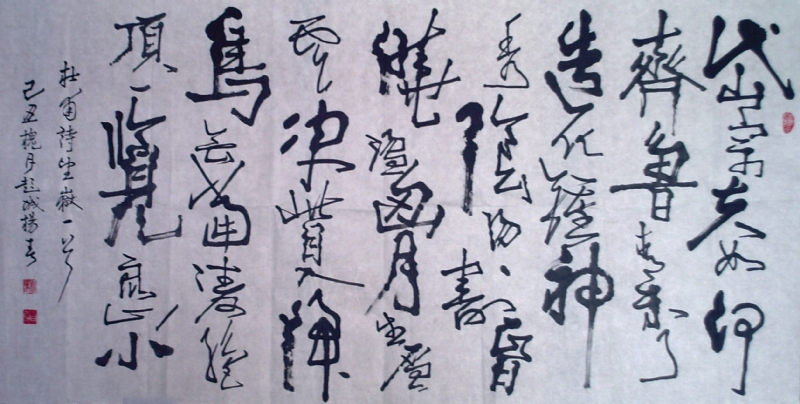 岱宗夫如何
齊魯青未了
造化鍾神
秀陰陽割昏
曉盪胸生層
雲決眥入歸
鳥會當凌絕
頂一覽眾山小
杜甫詩望嶽一首
己丑月